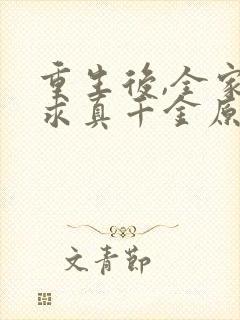 重生後,全家
求真千金原
文青節